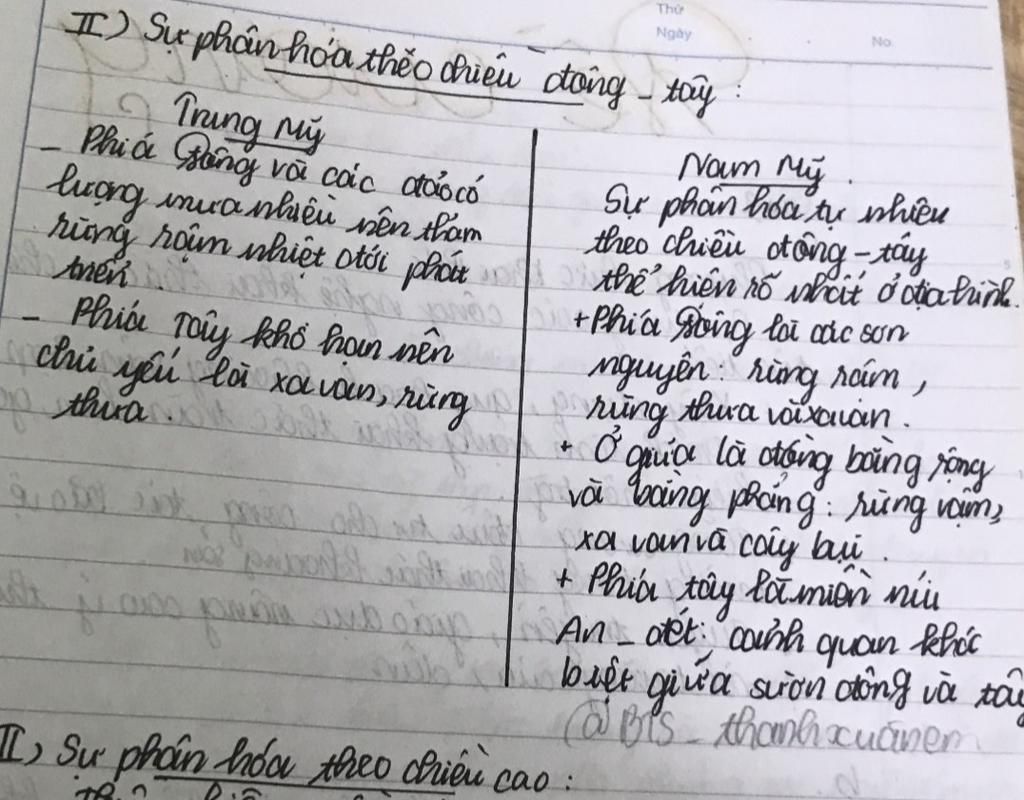 Thứ
Ngày
No.
II) Sự phân hóa theo chiều đông - tây :
Trung Mỹ
- Phía Đông và các đảo có
lượng mưa nhiều nên thảm
rừng rậm nhiệt đới phát
triển
- Phía Tây khô hạn nên
chủ yếu là xa van, rừng
thưa.
Nam Mỹ.
Sự phân hóa tự nhiên
theo chiều đông - tây
thể hiện rõ nhất ở địa hình.
+ Phía Đông là các sơn
nguyên: rừng rậm,
rừng thưa và xa van.
+ Ở giữa là đồng bằng rộng
và bằng phẳng: rừng rậm,
xa van và cây bụi.
+ Phía tây là miền núi
An - đét: cảnh quan khác
biệt giữa sườn đông và tây
@BTS_thanhxuanem
II) Sự phân hóa theo chiều cao :